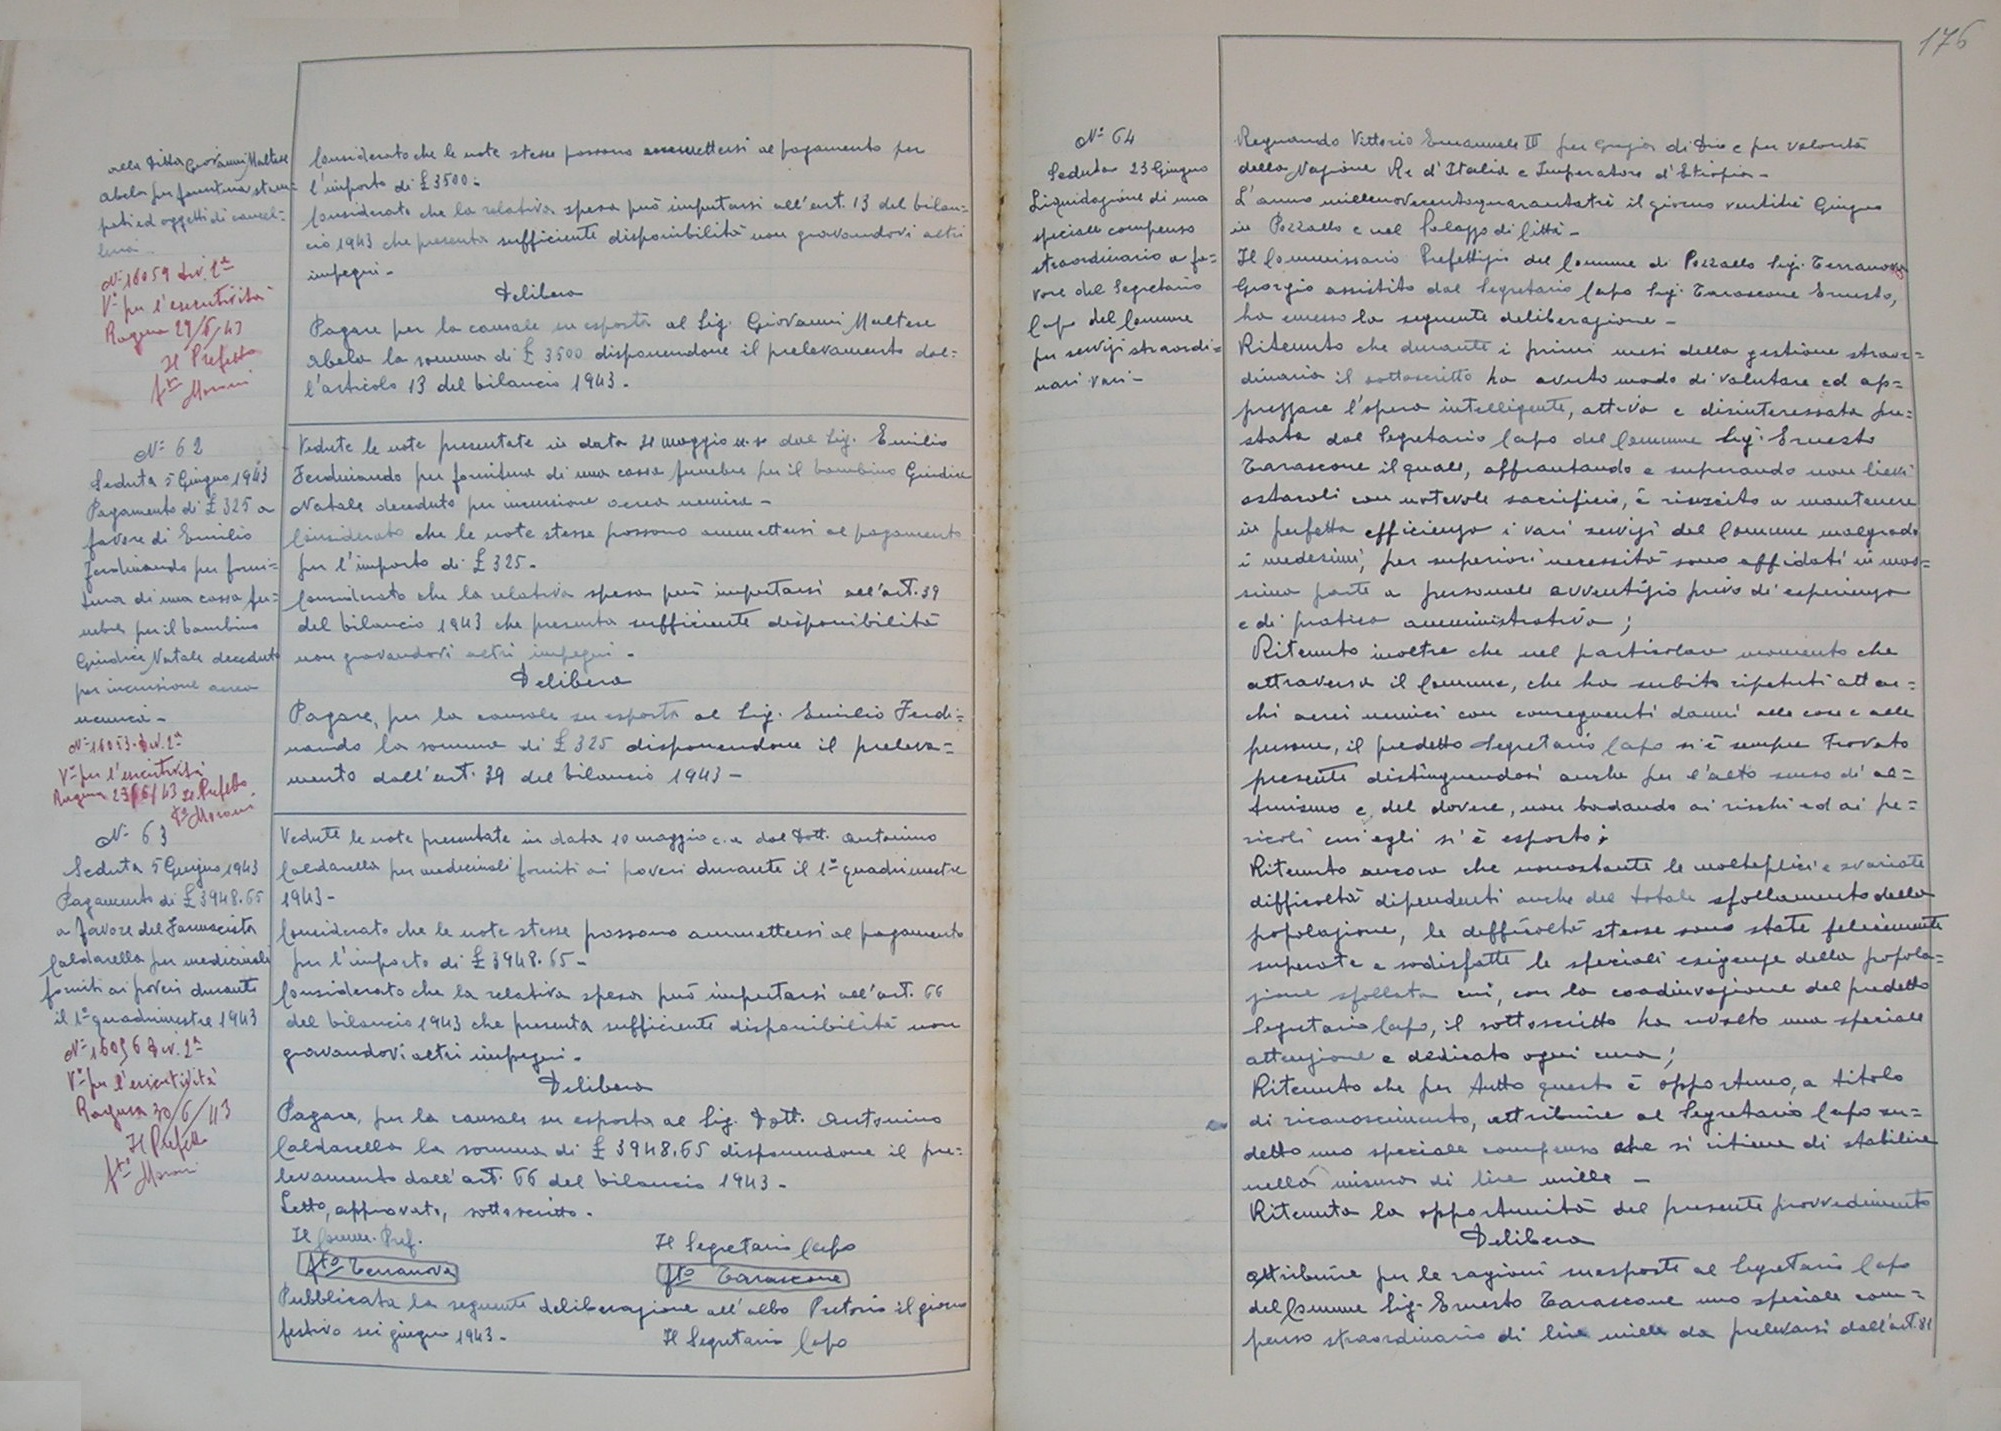 alla Ditta Giovanni Maltese
Abela per fornitura stam=
pati ed oggetti di cancel=
leria.
N° 16059 Div. 2ª
V° per l'esecutività
Ragusa 29/6/43
Il Prefetto
fto
Considerato che le note stesse possono ammettersi al pagamento per
l'importo di £ 3500.
Considerato che la relativa spesa può imputarsi all'art. 13 del bilan=
cio 1943 che presenta sufficiente disponibilità non gravandovi altri
impegni.-
Delibera
Pagare per la causale su esposta al Sig. Giovanni Maltese
Abela la somma di £ 3500 disponendone il prelevamento dal=
l'articolo 13 del bilancio 1943.-
N° 62
Seduta 5 Giugno 1943
Pagamento di £ 325 a
favore di Emilio
Ferdinando per forni=
tura di una cassa fu=
nebre per il bambino
Giudice Natale deceduto
per incursione aerea
nemica.-
Div. 2ª
V° per l'esecutività
Ragusa 29/6/43 Il Prefetto
fto
Vedute le note presentate in data 31 maggio u.s. dal Sig. Emilio
Ferdinando per fornitura di una cassa funebre per il bambino Giudice
Natale deceduto per incursione aerea nemica.-
Considerato che le note stesse possono ammettersi al pagamento
per l'importo di £ 325.-
Considerato che la relativa spesa può imputarsi all'art. 39
del bilancio 1943 che presenta sufficiente disponibilità
non gravandovi altri impegni.-
Delibera
Pagare, per la causale su esposta al Sig. Emilio Ferdi=
nando la somma di £ 325 disponendone il preleva=
mento dall'art. 39 del bilancio 1943.-
N° 63
Seduta 5 Giugno 1943
Pagamento di £ 3948.65
a favore del Farmacista
Caldarella per medicinali
forniti ai poveri durante
il 1° quadrimestre 1943
N° 16056 Div. 2ª
V° per l'esecutività
Ragusa 30/6/43
Il Prefetto
fto
Vedute le note presentate in data 10 maggio c.a. dal Dott. Antonino
Caldarella per medicinali forniti ai poveri durante il 1° quadrimestre
1943.-
Considerato che le note stesse possono ammettersi al pagamento
per l'importo di £ 3948.65.-
Considerato che la relativa spesa può imputarsi all'art. 66
del bilancio 1943 che presenta sufficiente disponibilità non
gravandovi altri impegni.-
Delibera
Pagare, per la causale su esposta al Sig. Dott. Antonino
Caldarella la somma di £ 3948.65 disponendone il pre=
levamento dall'art. 66 del bilancio 1943.-
Letto, approvato, sottoscritto.-
Il Comm. Pref. Il Segretario Capo
fto Terranova fto Tarascone
Pubblicata la seguente deliberazione all'albo Pretorio il giorno
festivo sei giugno 1943.-
Il Segretario Capo
176
N° 64
Seduta 23 Giugno
Liquidazione di uno
speciale compenso
straordinario a fa=
vore del Segretario
Capo del Comune
per servizi straordi=
nari vari.-
Regnando Vittorio Emanuele III per grazia di Dio e per volontà
della Nazione Re d'Italia e Imperatore d'Etiopia.-
L'anno millenovecentoquarantatrè il giorno ventitrè Giugno
in Pozzallo e nel Palazzo di Città.-
Il Commissario Prefettizio del Comune di Pozzallo Sig. Terranova
Giorgio assistito dal Segretario Capo Sig. Tarascone Ernesto,
ha emesso la seguente deliberazione.-
Ritenuto che durante i primi mesi della gestione straor=
dinaria il sottoscritto ha avuto modo di valutare ed ap=
prezzare l'opera intelligente, attiva e disinteressata pre=
stata dal Segretario Capo del Comune Sig. Ernesto
Tarascone il quale, affrontando e superando non lievi
ostacoli con notevole sacrificio, è riuscito a mantenere
in perfetta efficienza i vari servizi del Comune malgrado
i medesimi, per superiori necessità sono affidati in mas=
sima parte a personale avventizio privo di esperienza
e di pratica amministrativa;
Ritenuto inoltre che nel particolare momento che
attraversa il Comune, che ha subito ripetuti attac=
chi aerei nemici con conseguenti danni alle cose e alle
persone, il predetto Segretario Capo si è sempre trovato
presente distinguendosi anche per l'alto senso di al=
truismo e del dovere, non badando ai rischi ed ai pe=
ricoli cui egli si è esposto;
Ritenuto ancora che nonostante le molteplici e svariate
difficoltà dipendenti anche del totale sfollamento della
popolazione, le difficoltà stesse sono state felicemente
superate e sodisfatte le speciali esigenze della popola=
zione sfollata cui, con la coadiuvazione del predetto
Segretario Capo, il sottoscritto ha rivolto una speciale
attenzione e dedicato ogni cura;
Ritenuto che per tutto questo è opportuno, a titolo
di riconoscimento, attribuire al Segretario Capo su=
detto uno speciale compenso che si ritiene di stabilire
nella misura di lire mille.-
Ritenuta la opportunità del presente provvedimento
Delibera
Attribuire per le ragioni suesposte al Segretario Capo
del Comune Sig. Ernesto Tarascone uno speciale com=
penso straordinario di lire mille da prelevarsi dall'art. 81